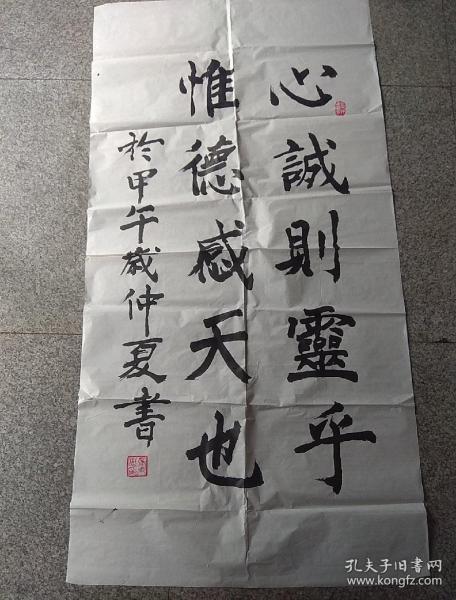 心誠則靈乎
惟德感天也
於甲午歲仲夏書
孔夫子旧书网
www.kongfz.com